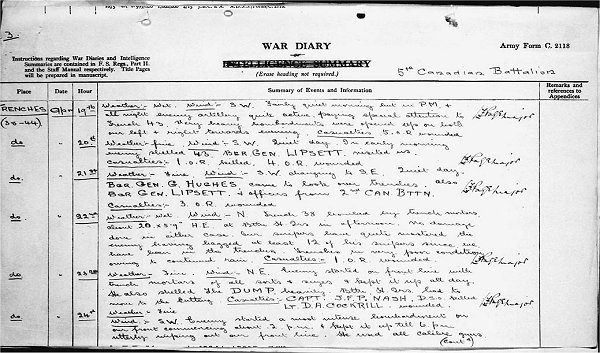 3
Instructions regarding War Diaries and Intelligence
Summaries are contained in F. S. Regs., Part II.
and the Staff Manual respectively. Title Pages
will be prepared in manuscript.
WAR DIARY
INTELLIGENCE SUMMARY
(Erase heading not required.)
Army Form C. 2118
5th Canadian Battalion
Place Date Hour Summary of Events and Information Remarks and references to Appendices
TRENCHES Apr 19th Weather:- Wet. Wind:- S.W. Fairly quiet morning but in P.M. &
(38-44) all night enemy artillery quite active paying special attention to
Trench 43. Very heavy bombardments were going on both on
our left & right towards evening. Casualties 5. O.R wounded
do. " 20th Weather:- fine. Wind:- S.W. Quiet day. In early morning
enemy shelled 43. BER GEN. LIPSETT visited us.
Casualties:- 1. O.R. killed. 4. O.R. wounded
do " 21st Weather:- Fine. Wind:- S.W. changing to S.E. Quiet day.
BGR GEN. G. HUGHES came to look over trenches. also
BGR GEN. LIPSETT. & officers from 2nd CAN BTTN.
Casualties:- 3. O.R. wounded
do " 22nd Weather:- Wet. Wind:- N. Trench 38 bombed by trench mortars.
about 20 x 5.9" H.E. at Bttn H Qrs in afternoon. No damage
done in either case. Our snipers have quite mastered the
enemy having bagged at least 12 of his snipers since we
have been in the trenches. Trenches in very poor condition
owing to continued rain. Casualties:- 1 O.R wounded
do " 23rd Weather:- Fine. Wind:- N.E. Enemy started on front line with
trench mortars of all sorts & sizes & kept it up all day.
He also shelled The DUMP heavily. Bttn H Qrs. had to
move to the Cutting. Casualties:- CAPT. J.F.P. NASH, D.S.O. killed
LT. D.A. COCKRILL wounded.
do " 24th Weather:- Fine
Wind:- S.W. Enemy started a most intense bombardment on
our front commencing about 2 p.m. & kept it up till 6 p.m.
utterly wiping out our front line. He used all calibre guns
(cont'd)